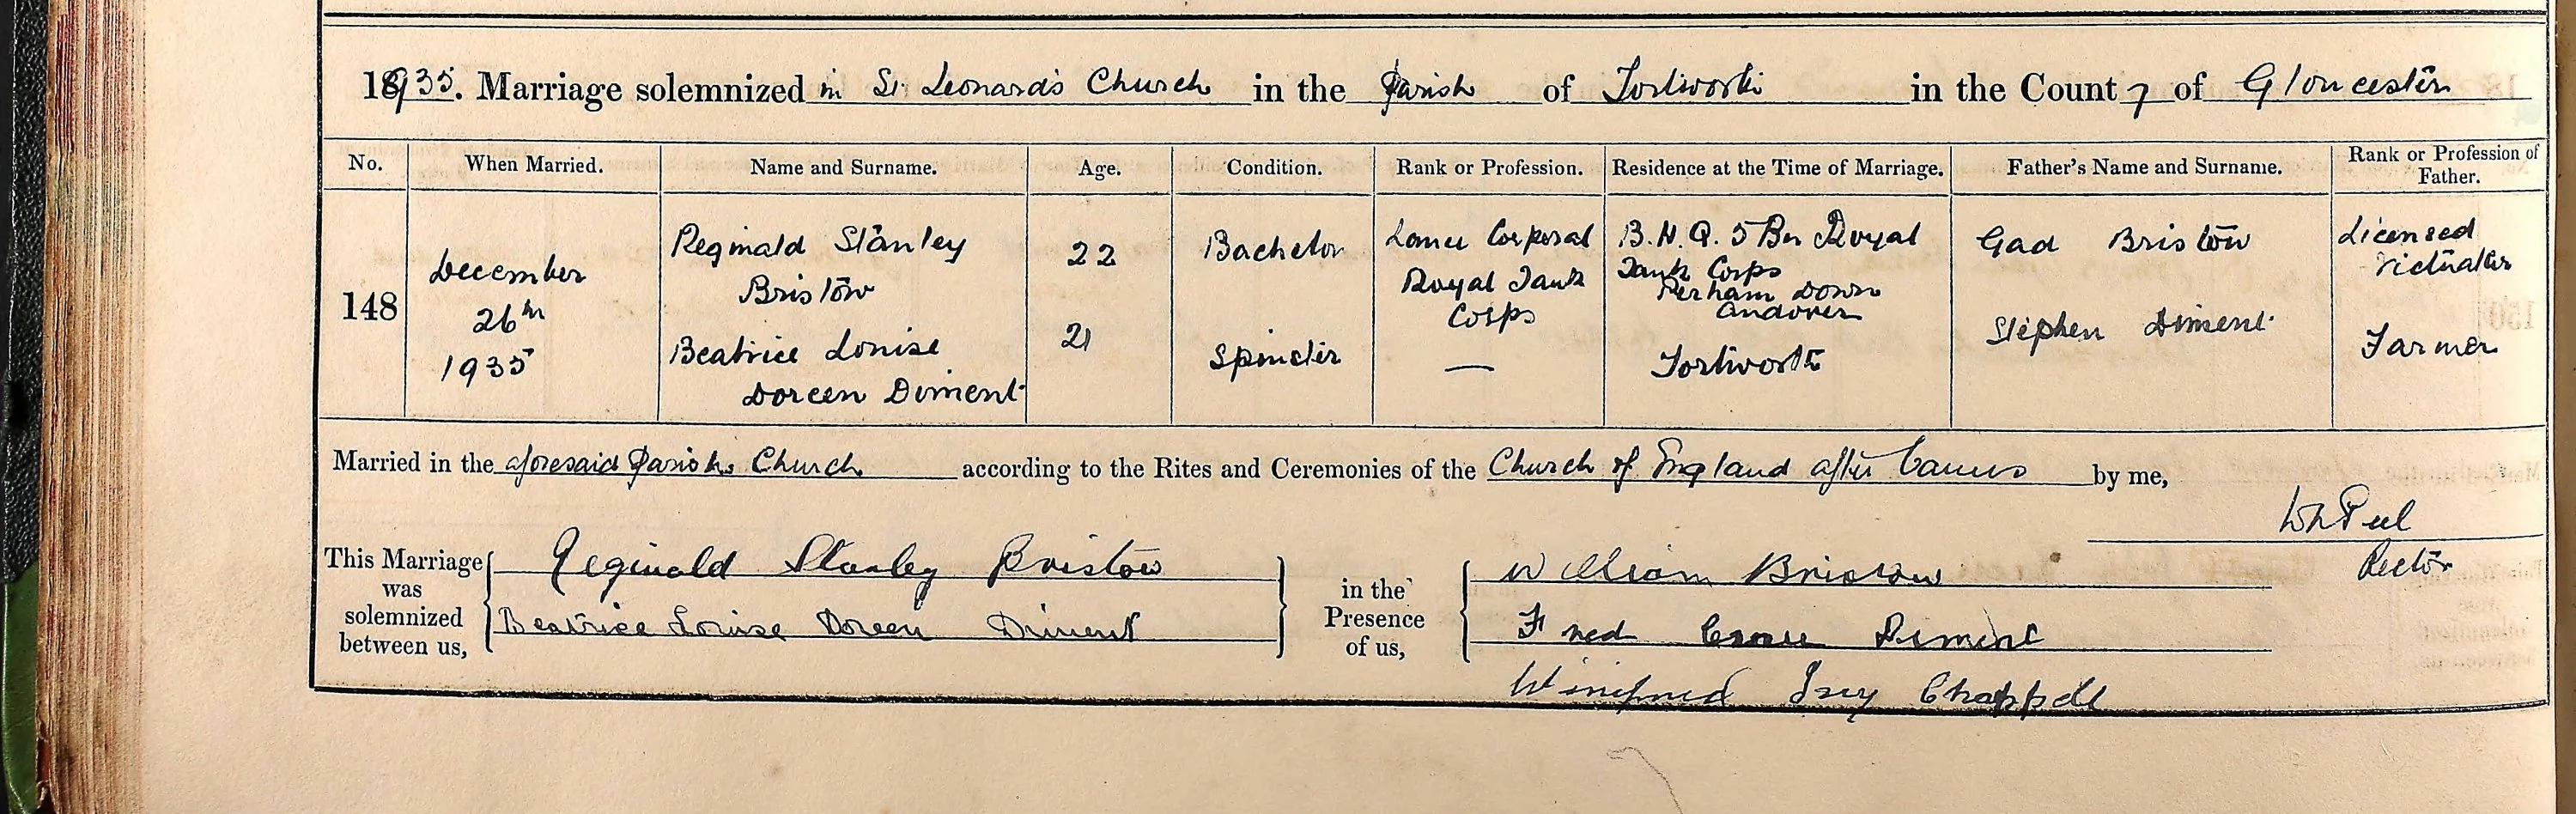 1935. Marriage solemnized in St. Leonard's Church in the Parish of Tortworth in the County of Gloucester
No. When Married. Name and Surname. Age. Condition. Rank or Profession. Residence at the Time of Marriage. Father's Name and Surname. Rank or Profession of Father.
148
December
26th
1935
Reginald Stanley
Bristow
22
Bachelor
Lance Corporal
Royal Tank
Corps
B.H.Q. 5 Bn Royal
Tank Corps
Perham Down
Andover
Gad Bristow
Licensed
Victualler
Beatrice Louise
Doreen Diment
21
Spinster
—
Tortworth
Stephen Diment
Farmer
Married in the aforesaid Parish Church according to the Rites and Ceremonies of the Church of England after banns by me,
Peel
Rector
This Marriage
was
solemnized
between us,
Reginald Stanley Bristow
Beatrice Louise Doreen Diment
in the
Presence
of us,
William Bristow
Fred Diment
Winifred Ivy Chappell